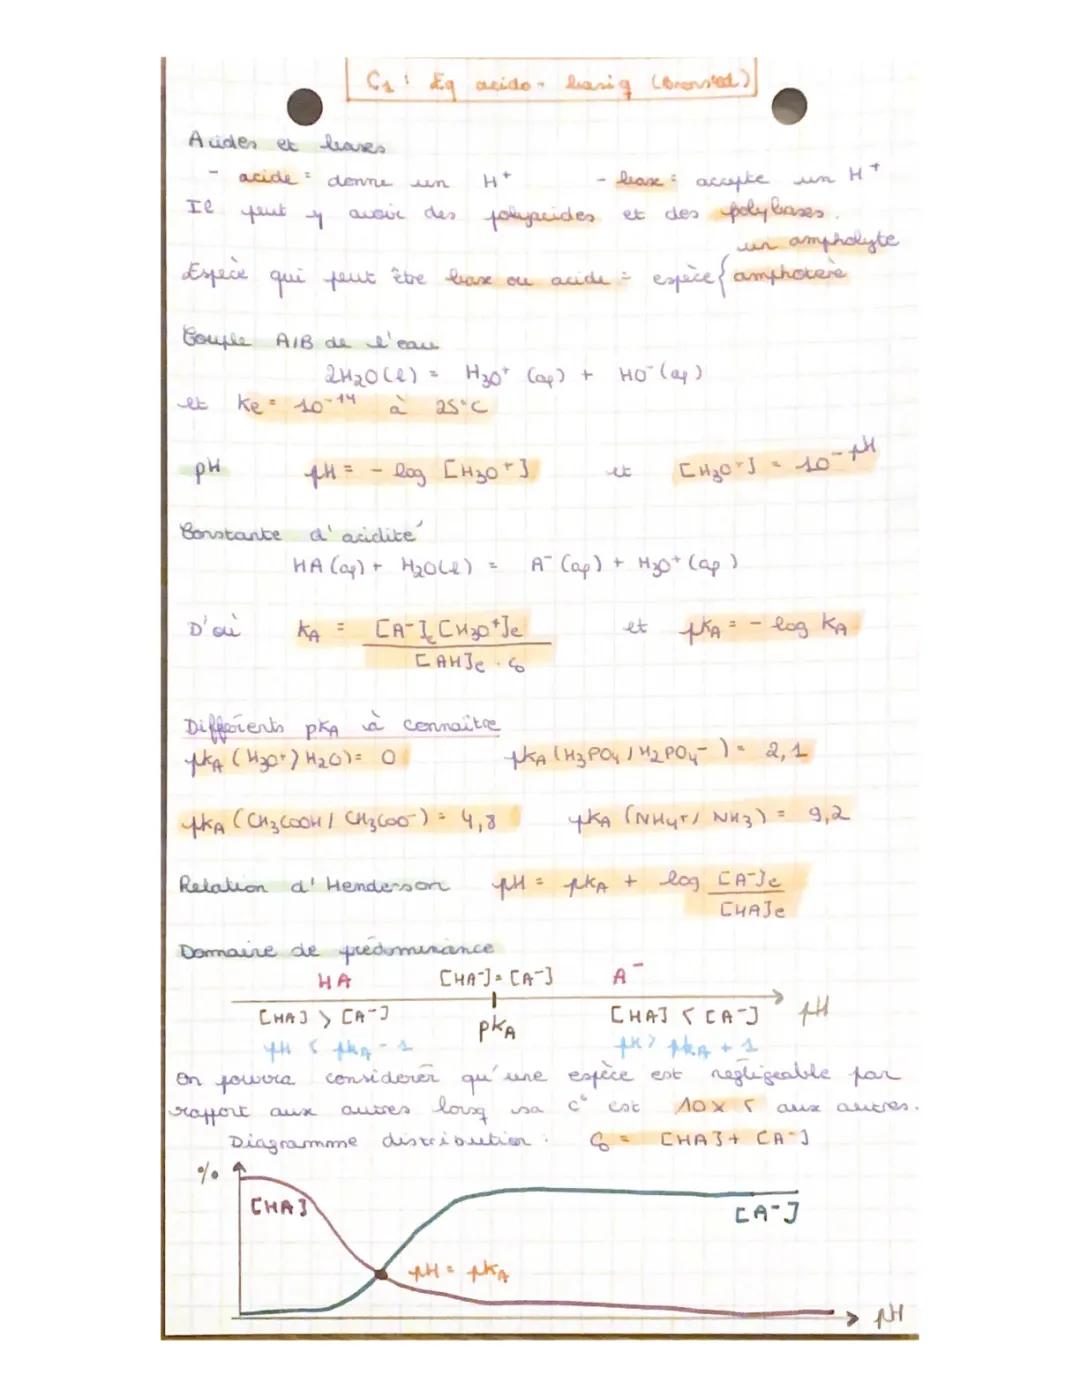 C1 : Eq acido-basiq (Bronsted)
Acides et bases
- acide = donne un H+ - base = accepte un H+
Il peut y avoir des polyacides et des polybases.
un ampholyte
Espèce qui peut être base ou acide = espèce { amphotère
Couple A/B de l'eau
2H2O(l) = H3O+ (aq) + HO- (aq)
et Ke = 10-14 à 25°C
pH pH = - log [H3O+] et [H3O+] = 10-pH
Constante d'acidité
HA (aq) + H2O(l) = A- (aq) + H3O+ (aq)
D'où KA = [A-]e[H3O+]e et pKA = - log KA
[AH]e . C0
Différents pKA à connaître
pKA (H3O+/H2O) = 0 pKA (H3PO4/H2PO4-) = 2,1
pKA (CH3COOH/CH3COO-) = 4,8 pKA (NH4+/NH3) = 9,2
Relation d'Henderson pH = pKA + log [A-]e
[HA]e
Domaine de prédominance
HA [HA-] = [A-] A-
[HA] > [A-] pKA [HA] < [A-] pH
pH < pKA - 1 pH > pKA + 1
On pourra considérer qu'une espèce est négligeable par
rapport aux autres lorsq sa c° est 10x < aux autres.
Diagramme distribution : C0 = [HA] + [A-]
%
[HA] [A-]
pH = pKA
pH